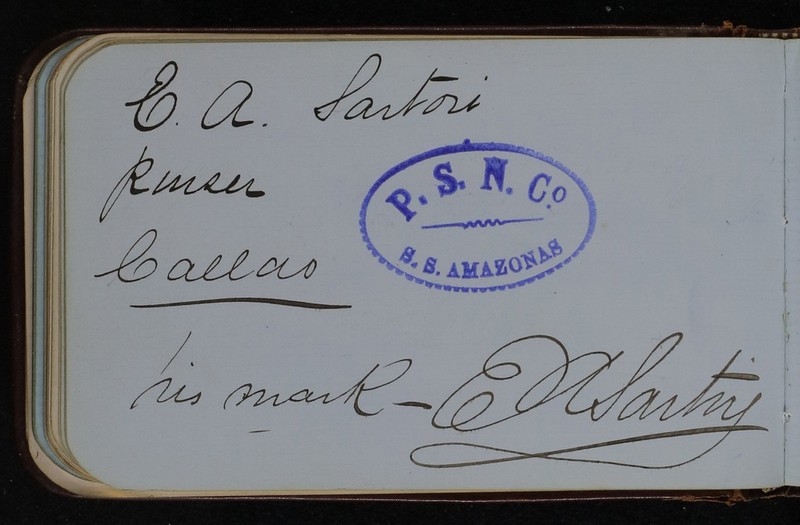 E. A. Sartori
P. S. N. Co.
S. S. AMAZONAS
Callao
his mark - E A Sartori